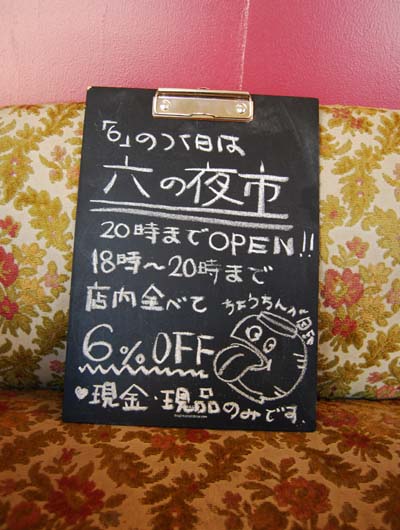 「6」のつく日は
六の夜市
20時までOPEN!!
18時～20時まで
店内全べて
ちょうちんが
6%OFF
♥現金・現品のみです。